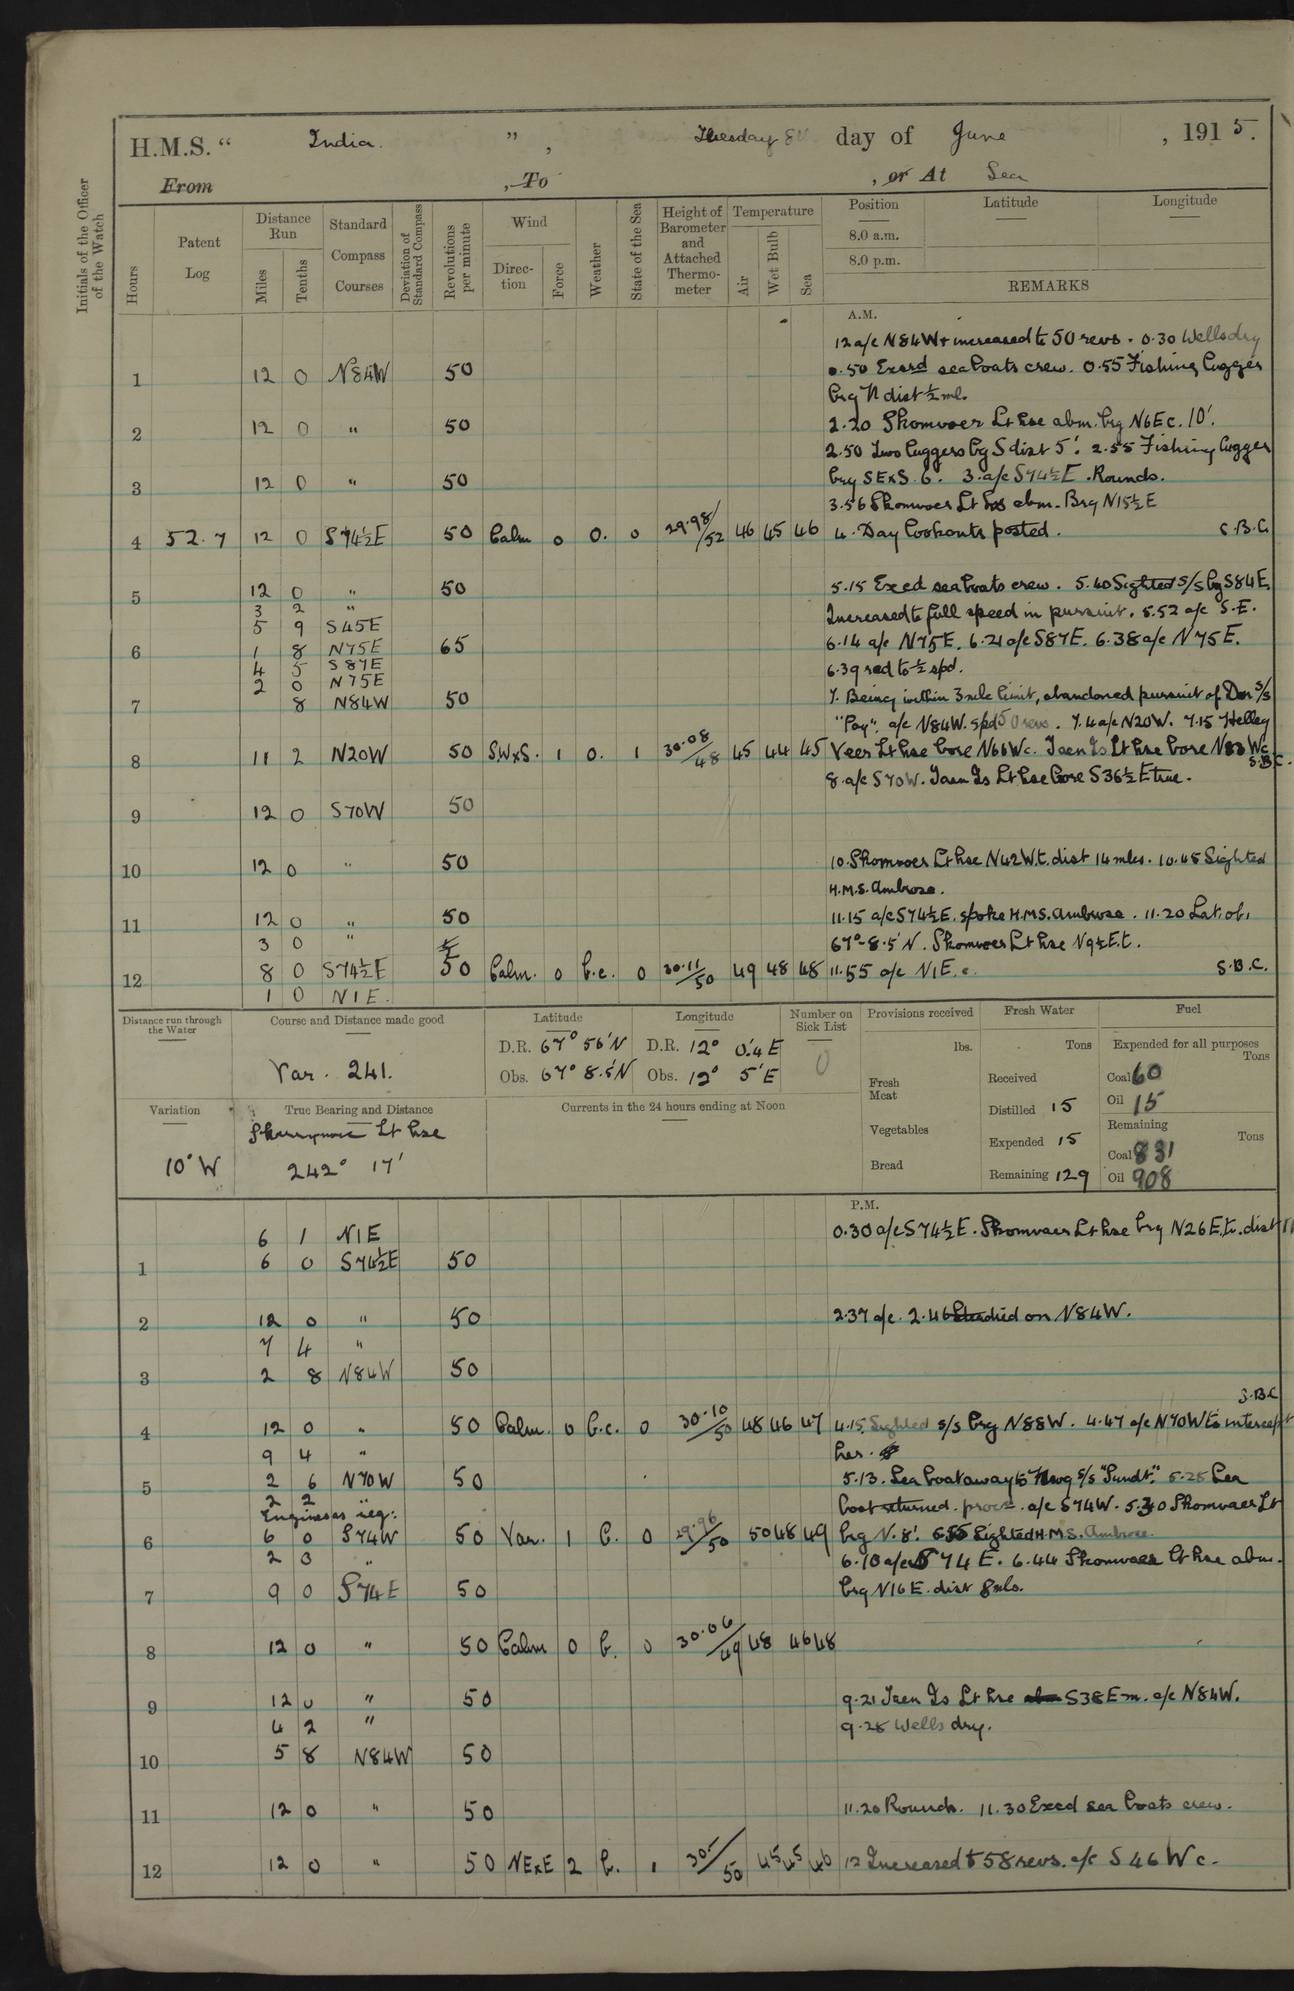 H.M.S. " India. " , Tuesday 8th day of June , 1915.
From , To , or At Sea
Initials of the Officer of the Watch
Hours
Patent Log
Distance Run
Miles
Tenths
Standard Compass Courses
Deviation of Standard Compass
Revolutions per minute
Wind
Direction
Force
Weather
State of the Sea
Height of Barometer and Attached Thermometer
Temperature
Air
Wet Bulb
Sea
Position
Latitude
Longitude
8.0 a.m.
8.0 p.m.
REMARKS
A.M.
12 a/c N84W + increased to 50 revs. 0.30 Wells dry
1 12 0 N84W 50 0.50 Exercd sea boats crew. 0.55 Fishing lugger
brg N dist ½ ml.
2 12 0 " 50 2.20 Skomvaer Lt hse abm. brg N6E c. 10'.
2.50 Two luggers brg S dist 5'. 2.55 Fishing lugger
3 12 0 " 50 brg SExS. 6. 3. a/c S74½E. Rounds.
3.56 Skomvaer Lt hse abm. Brg N15½E
4 52.7 12 0 S74½E 50 Calm 0 O. 0 29.98/52 46 45 46 4. Day lookouts posted. S.B.C.
5 12 0 " 50 5.15 Exced sea boats crew. 5.40 Sighted s/s brg S84E.
3 2 " Increased to full speed in pursuit. 5.52 a/c S.E.
5 9 S45E
6 1 8 N75E 65 6.14 a/c N75E. 6.21 a/c S87E. 6.38 a/c N75E.
4 5 S87E 6.39 red to ½ spd.
2 0 N75E
7 8 N84W 50 7. Being within 3 mile limit, abandoned pursuit of Dan s/s
"Pay". a/c N84W. spd 50 revs. 7.4 a/c N20W. 7.15 Helley
8 11 2 N20W 50 SWxS. 1 O. 1 30.08/48 45 44 45 Veer Lt hse bore N66W c. Taen Is Lt hse bore N83W c. S.B.C.
8. a/c S70W. Taen Is Lt hse bore S36½E true.
9 12 0 S70W 50
10 12 0 " 50 10. Skomvaer Lt hse N42W.t. dist 14 mls. 10.45 Sighted
H.M.S. Ambrose.
11 12 0 " 50 11.15 a/c S74½E. spoke H.M.S. Ambrose. 11.20 Lat. ob.
3 0 " 67°-8.5'N. Skomvaer Lt hse N9½E.t.
12 8 0 S74½E 50 Calm. 0 b.c. 0 30.11/50 49 48 48 11.55 a/c N1E. c. S.B.C.
1 0 N1E.
Distance run through the Water
Course and Distance made good
Var. 241.
Latitude
D.R. 67° 56'N
Obs. 67° 8.5'N
Longitude
D.R. 12° 0'.4 E
Obs. 12° 5'E
Number on Sick List
0
Provisions received
lbs.
Fresh Meat
Vegetables
Bread
Fresh Water
Tons
Received
Distilled 15
Expended 15
Remaining 129
Fuel
Expended for all purposes
Tons
Coal 60
Oil 15
Remaining
Tons
Coal 831
Oil 908
Variation
10° W
True Bearing and Distance
Lt hse
242° 17'
Currents in the 24 hours ending at Noon
P.M.
6 1 N1E 0.30 a/c S74½E. Skomvaer Lt hse brg N26E.t. dist 11
1 6 0 S74½E 50
2 12 0 " 50 2.37 a/c. 2.46 Steadied on N84W.
7 4 "
3 2 8 N84W 50
S.B.C
4 12 0 " 50 Calm. 0 b.c. 0 30.10/50 48 46 47 4.15. Sighted s/s brg N88W. 4.47 a/c N70W to intercept
9 4 " her.
5 2 6 N70W 50 5.13. Sea boat away to Nwg s/s "Sundt." 5.25 Sea
2 2 "
Engines as req: boat returned. proc. a/c S74W. 5.30 Skomvaer Lt
6 6 0 S74W 50 Var. 1 b. 0 29.96/50 50 48 49 brg N. 8'. Sighted H.M.S. Ambrose.
2 0 " 6.10 a/c S74E. 6.44 Skomvaer Lt hse abm.
7 9 0 S74E 50 brg N16E. dist 8 mls.
8 12 0 " 50 Calm 0 b. 0 30.06/49 48 46 48
9 12 0 " 50 9.21 Taen Is Lt hse S38E m. a/c N84W.
4 2 " 9.25 Wells dry.
10 5 8 N84W 50
11 12 0 " 50 11.20 Rounds. 11.30 Exced sea boats crew.
12 12 0 " 50 NExE 2 b. 1 30./50 45 45 46 12 Increased to 58 revs. a/c S46W c.